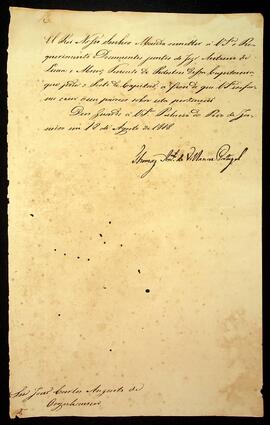 El Rei Nosso Senhor Manda remetter a V.S.ª o Re
querimento Documentos juntos de José Antonio de
Lima e Tenente de Pedestres dessa Capitania,
que pede o Posto de Capitão, a fim de que V.S.ª infor
me com o seu parecer sobre esta pertenção
Deos Guarde a V.S.ª Palacio do Rio de Ja
neiro em 18 de Agosto de 1818
Thomaz Ant.º de Villanova Portugal
Snr João Carlos Augusto de
Oeynhausen